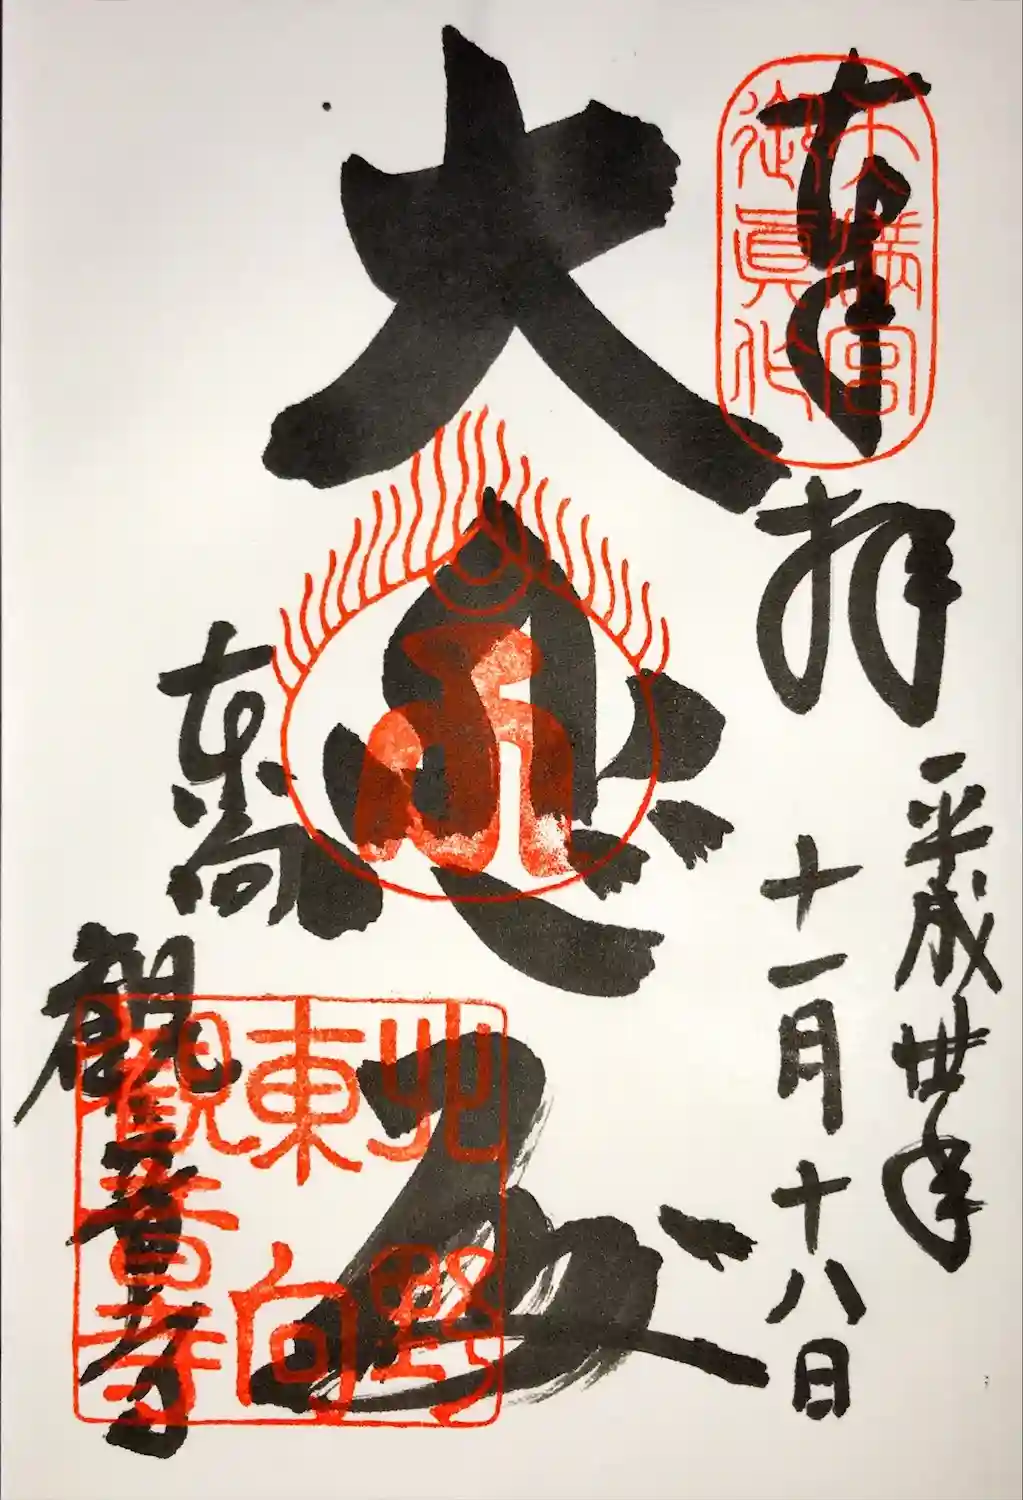 奉拝
平成丗年
十一月十八日
大悲殿
東向
観音寺
天満宮
御眞作
北野
東向
観音寺